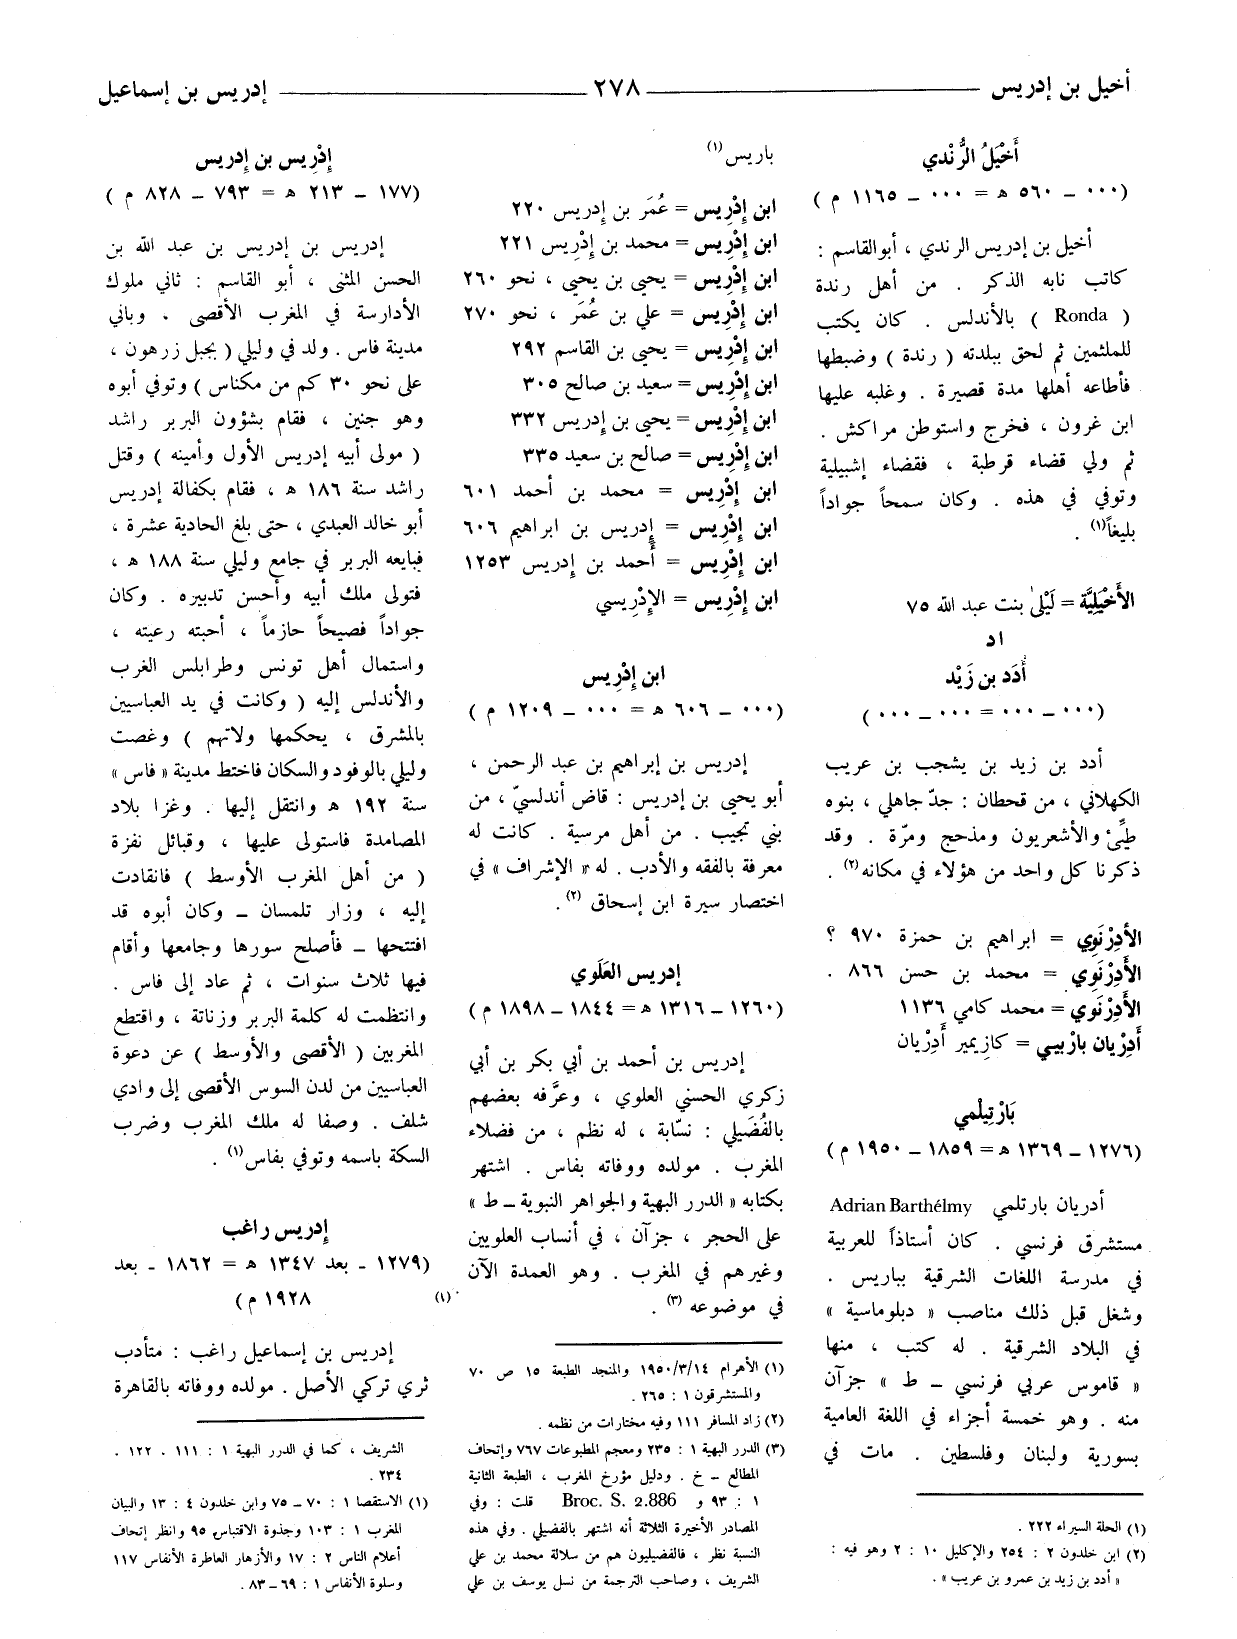 أخيل بن إدريس ٢٧٨ إدريس بن إسماعيل
أَخْيَلُ الرُّنْدي
(٠٠٠ – ٥٦٠ ه = ٠٠٠ – ١١٦٥ م )
أخيل بن إدريس الرندي ، أبوالقاسم :
كاتب نابه الذكر . من أهل رندة
( Ronda ) بالأندلس . كان يكتب
للملثمين ثم لحق ببلدته ( رندة ) وضبطها
فأطاعه أهلها مدة قصيرة . وغلبه عليها
ابن غرون ، فخرج واستوطن مراكش .
ثم ولي قضاء قرطبة ، فقضاء إشبيلية
وتوفي في هذه . وكان سمحاً جواداً
بليغاً(١) .
الأَخْيَلِيَّة = لَيْلىٰ بنت عبد الله ٧٥
اد
أُدَد بن زَيْد
(٠٠٠ – ٠٠٠ = ٠٠٠ – ٠٠٠ )
أدد بن زيد بن يشجب بن عريب
الكهلاني ، من قحطان : جدّ جاهلي ، بنوه
طيِّئ والأشعريون ومذحج ومرّة . وقد
ذكرنا كل واحد من هؤلاء في مكانه(٢) .
الأَدِرْنَوِي = ابراهيم بن حمزة ٩٧٠ ؟
الأَدِرْنَوِي = محمد بن حسن ٨٦٦ .
الأَدِرْنَوِي = محمد كامي ١١٣٦
أَدِرْيان بارْبيي = كازِيمير أَدِرْيان
بَارْتيلْمي
(١٢٧٦ – ١٣٦٩ ه = ١٨٥٩ – ١٩٥٠ م )
أدريان بارتلمي Adrian Barthélmy
مستشرق فرنسي . كان أستاذاً للعربية
في مدرسة اللغات الشرقية بباريس .
وشغل قبل ذلك مناصب « دبلوماسية »
في البلاد الشرقية . له كتب ، منها
« قاموس عربي فرنسي – ط » جزآن
منه . وهو خمسة أجزاء في اللغة العامية
بسورية ولبنان وفلسطين . مات في
(١) الحلة السيراء ٢٢٢ .
(٢) ابن خلدون ٢ : ٢٥٤ والإكليل ١٠ : ٢ وهو فيه :
« أدد بن زيد بن عمرو بن عريب » .
باريس(١)
ابن إدْرِيس = عُمَر بن إدريس ٢٢٠
ابن إدْرِيس = محمد بن إدْرِيس ٢٢١
ابن إدْرِيس = يحيى بن يحيى ، نحو ٢٦٠
ابن إدْرِيس = علي بن عُمَر ، نحو ٢٧٠
ابن إدْرِيس = يحيى بن القاسم ٢٩٢
ابن إدْرِيس = سعيد بن صالح ٣٠٥
ابن إدْرِيس = يحيى بن إدريس ٣٣٢
ابن إدْرِيس = صالح بن سعيد ٣٣٥
ابن إدْرِيس = محمد بن أحمد ٦٠١
ابن إدْرِيس = إدريس بن ابراهيم ٦٠٦
ابن إدْرِيس = أحمد بن إدريس ١٢٥٣
ابن إدْرِيس = الإدْرِيسي
ابن إدْرِيس
(٠٠٠ – ٦٠٦ ه = ٠٠٠ – ١٢٠٩ م )
إدريس بن إبراهيم بن عبد الرحمن ،
أبو يحيى بن إدريس : قاض أندلسيّ ، من
بني تجيب . من أهل مرسية . كانت له
معرفة بالفقه والأدب . له « الإشراف » في
اختصار سيرة ابن إسحاق (٢) .
إدريس العَلَوي
(١٢٦٠ – ١٣١٦ ه = ١٨٤٤ – ١٨٩٨ م )
إدريس بن أحمد بن أبي بكر بن أبي
زكري الحسني العلوي ، وعرَّفه بعضهم
بالفُضَيلي : نسّابة ، له نظم ، من فضلاء
المغرب . مولده ووفاته بفاس . اشتهر
بكتابه « الدرر البهية والجواهر النبوية – ط »
على الحجر ، جزآن ، في أنساب العلويين
وغيرهم في المغرب . وهو العمدة الآن
في موضوعه (٣) .
(١) الأهرام ١٩٥٠/٣/١٤ والمنجد الطبعة ١٥ ص ٧٠
والمستشرقون ١ : ٢٦٥ .
(٢) زاد المسافر ١١١ وفيه مختارات من نظمه .
(٣) الدرر البهية ١ : ٢٣٥ ومعجم المطبوعات ٧٦٧ وإتحاف
المطالع – خ . ودليل مؤرخ المغرب ، الطبعة الثانية
١ : ٩٣ و Broc. S. 2.886 قلت : وفي
المصادر الأخيرة الثلاثة أنه اشتهر بالفضيلي . وفي هذه
النسبة نظر ، فالفضيليون هم من سلالة محمد بن علي
الشريف ، وصاحب الترجمة من نسل يوسف بن علي
إدْرِيس بن إدريس
(١٧٧ – ٢١٣ ه = ٧٩٣ – ٨٢٨ م )
إدريس بن إدريس بن عبد الله بن
الحسن المثنى ، أبو القاسم : ثاني ملوك
الأدارسة في المغرب الأقصى . وباني
مدينة فاس . ولد في وليلي ( بجبل زرهون ،
على نحو ٣٠ كم من مكناس ) وتوفي أبوه
وهو جنين ، فقام بشؤون البربر راشد
( مولى أبيه إدريس الأول وأمينه ) وقتل
راشد سنة ١٨٦ ه ، فقام بكفالة إدريس
أبو خالد العبدي ، حتى بلغ الحادية عشرة ،
فبايعه البربر في جامع وليلي سنة ١٨٨ ه ،
فتولى ملك أبيه وأحسن تدبيره . وكان
جواداً فصيحاً حازماً ، أحبته رعيته ،
واستمال أهل تونس وطرابلس الغرب
والأندلس إليه ( وكانت في يد العباسيين
بالمشرق ، يحكمها ولاتهم ) وغصت
وليلي بالوفود والسكان فاختط مدينة « فاس »
سنة ١٩٢ ه وانتقل إليها . وغزا بلاد
المصامدة فاستولى عليها ، وقبائل نفزة
( من أهل المغرب الأوسط ) فانقادت
إليه ، وزار تلمسان – وكان أبوه قد
افتتحها – فأصلح سورها وجامعها وأقام
فيها ثلاث سنوات ، ثم عاد إلى فاس .
وانتظمت له كلمة البربر وزناتة ، واقتطع
المغربين ( الأقصى والأوسط ) عن دعوة
العباسيين من لدن السوس الأقصى إلى وادي
شلف . وصفا له ملك المغرب وضرب
السكة باسمه وتوفي بفاس(١) .
إدريس راغب
(١٢٧٩ - بعد ١٣٤٧ ه = ١٨٦٢ - بعد
١٩٢٨ م)
(١)
إدريس بن إسماعيل راغب : متأدب
ثري تركي الأصل . مولده ووفاته بالقاهرة
الشريف ، كما في الدرر البهية ١ : ١١١ . ١٢٢ .
٢٣٤ .
(١) الاستقصا ١ : ٧٠ – ٧٥ وابن خلدون ٤ : ١٣ والبيان
المغرب ١ : ١٠٣ وجذوة الاقتباس ٩٥ وانظر إتحاف
أعلام الناس ٢ : ١٧ والأزهار العاطرة الأنفاس ١١٧
وسلوة الأنفاس ١ : ٦٩ – ٨٣ .